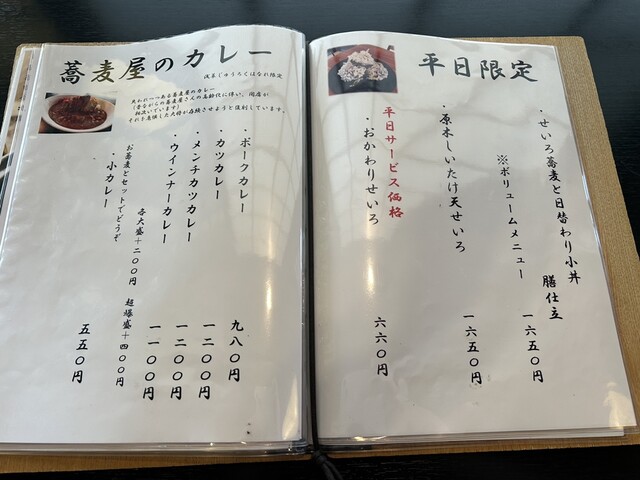 平日限定
・せいろ蕎麦と日替わり小丼
膳仕立
一六五〇円
※ボリュームメニュー
・原木しいたけ天せいろ
一六五〇円
平日サービス価格
・おかわりせいろ
六六〇円
蕎麦屋のカレー
失われつつある蕎麦屋のカレー
・ポークカレー
九八〇円
・カツカレー
一二〇〇円
・メンチカツカレー
一二〇〇円
・ウインナーカレー
一一〇〇円
各大盛+二〇〇円
超爆盛+四〇〇円
お蕎麦とセットでどうぞ
・小カレー
五五〇円